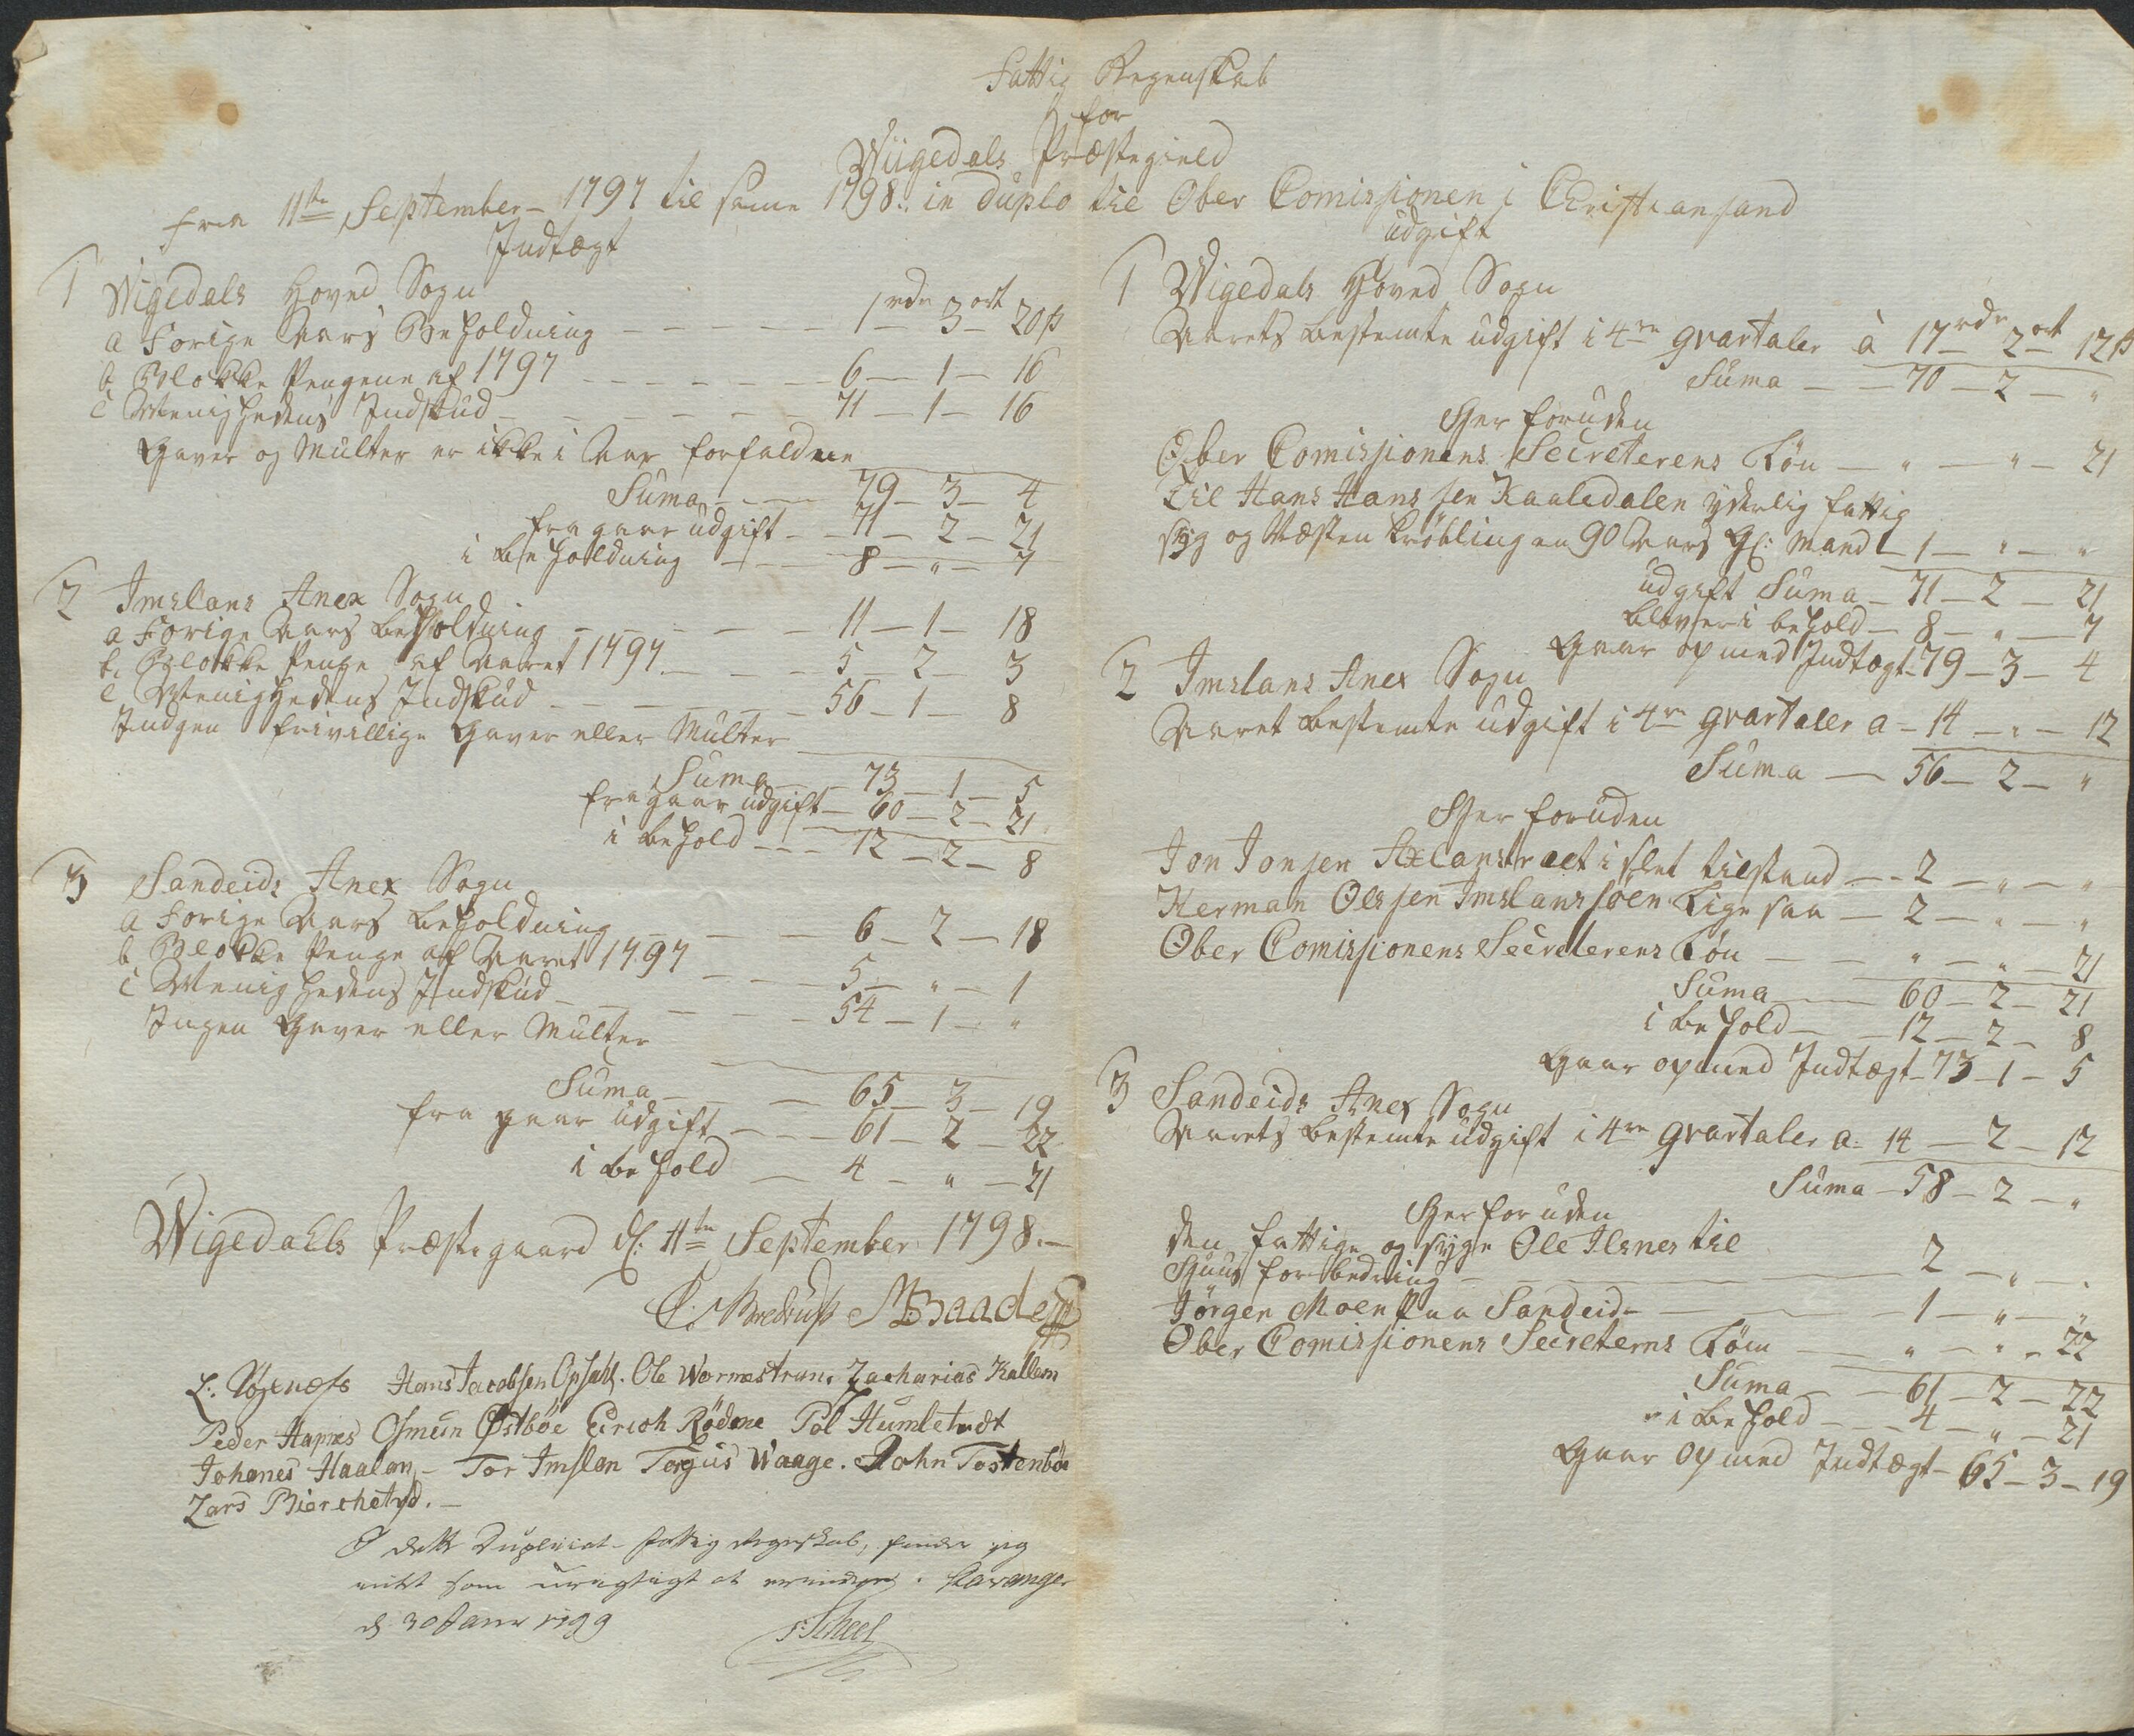 Fattig Regenskab
for
Wiigedals Præstegield
fra 11te September 1797 til samme 1798. in duplo til Ober Comissionen i Christiansand
Indtægt
1 Wigedals Hoved Sogn
a Forige Aars Beholdning — 1rdr 3ort 20ß
b Blokke Pengene af 1797 — 6 — 1 — 16
c Menighedens Indskud — 71 — 1 — 16
Gaver og Multer er ikke i Aar forfaldne
Suma — 79 — 3 — 4
fra gaar udgift — 71 — 2 — 21
i Beholdning — 8 — " — 7
2 Imslans Anex Sogn
a Forige Aars Beholdning — 11 — 1 — 18
b. Blokke Penge af Aaret 1797 — 5 — 2 — 3
c Menighedens Indskud — 56 — 1 — 8
Indgen frivillige Gaver eller Multer
Suma — 73 — 1 — 5
fra gaar udgift — 60 — 2 — 21
i Behold — 12 — 2 — 8
3 Sandeids Anex Sogn
a Forige Aars Beholdning — 6 — 2 — 18
b Blokke Penge af Aaret 1797 — 5 — " — 1
c Menighedens Indskud — 54 — 1 — "
Ingen Gaver eller Multer
Suma — 65 — 3 — 19
fra gaar udgift — 61 — 2 — 22
i Behold — 4 — " — 21
Wigedahls Præstegaard d: 11te September 1798.
C: Bredrup MBaade
L: Hans Jacobsen Opsahl. Ole Wormestran. Zacharias Kallem
Peder Hapnes Osmun Østbøe Eirich Rødne Pol Humlestadt
Johanes Haalan — Tor Imslan Torgus Waage. John Tostenbøe
Lars Bierchetvd.
I dette Duplicat fattig Regnskab, finder jeg
intet som urigtigt at erindre. Stavanger
d 30 Janr 1799 Scheel
udgift
1 Wigedals Hoved Sogn
Aarets bestemte udgift i 4re qvartaler à 17rdr 2ort 12ß
Suma — 70 — 2 — "
Her foruden
Ober Comissionens Secreterens Løn — " — " — 21
Til Hans Hanssen Kaaledalen yderlig fattig
syg og Næsten Krøbling en 90 Aars gl: Mand — 1 — " — "
udgift Suma — 71 — 2 — 21
bliver i behold — 8 — " — 7
Gaar op med Indtægt — 79 — 3 — 4
2 Imslans Anex Sogn
Aaret bestemte udgift i 4re qvartaler a — 14 — " — 12
Suma — 56 — 2 — "
Her foruden
Jon Jonsen i slet tilstand — 2 — " — "
Herman Olssen Imslanssøen Lige saa — 2 — " — "
Ober Comissionens Secreterens Løn — " — " — 21
Suma — 60 — 2 — 21
i Behold — 12 — 2 — 8
Gaar op med Indtægt — 73 — 1 — 5
3 Sandeids Anex Sogn
Aarets bestemte udgift i 4re qvartaler a: 14 — 2 — 12
Suma — 58 — 2 — "
Her foruden
den fattige og syge Ole Ilsnes til
Huus forbedring — 2 — " — "
Jörgen Moen paa Sandeid — 1 — " — "
Ober Comissionens Secreterns Løn — " — " — 22
Suma — 61 — 2 — 22
i Behold — 4 — " — 21
Gaar op med Indtægt — 65 — 3 — 19